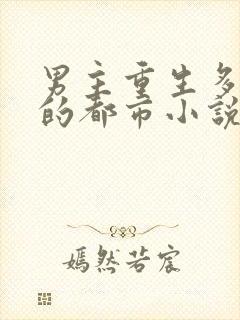 男主重生多
的都市小说
嫣然若宸